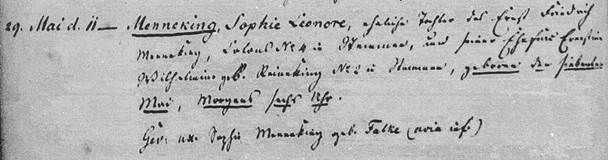 29. Mai d. 11 — Menneking, Sophie Leonore, eheliche Tochter des Ernst Friedrich
Menneking, Colons No 4 in Stemmen, und seiner Ehefrau Ernstine
Wilhelmine geb. Reineking No 2 in Stemmen, geboren den siebenten
Mai, Morgens sechs Uhr.
Gev: ux. Sophie Menneking geb. Falke (avia inf.)